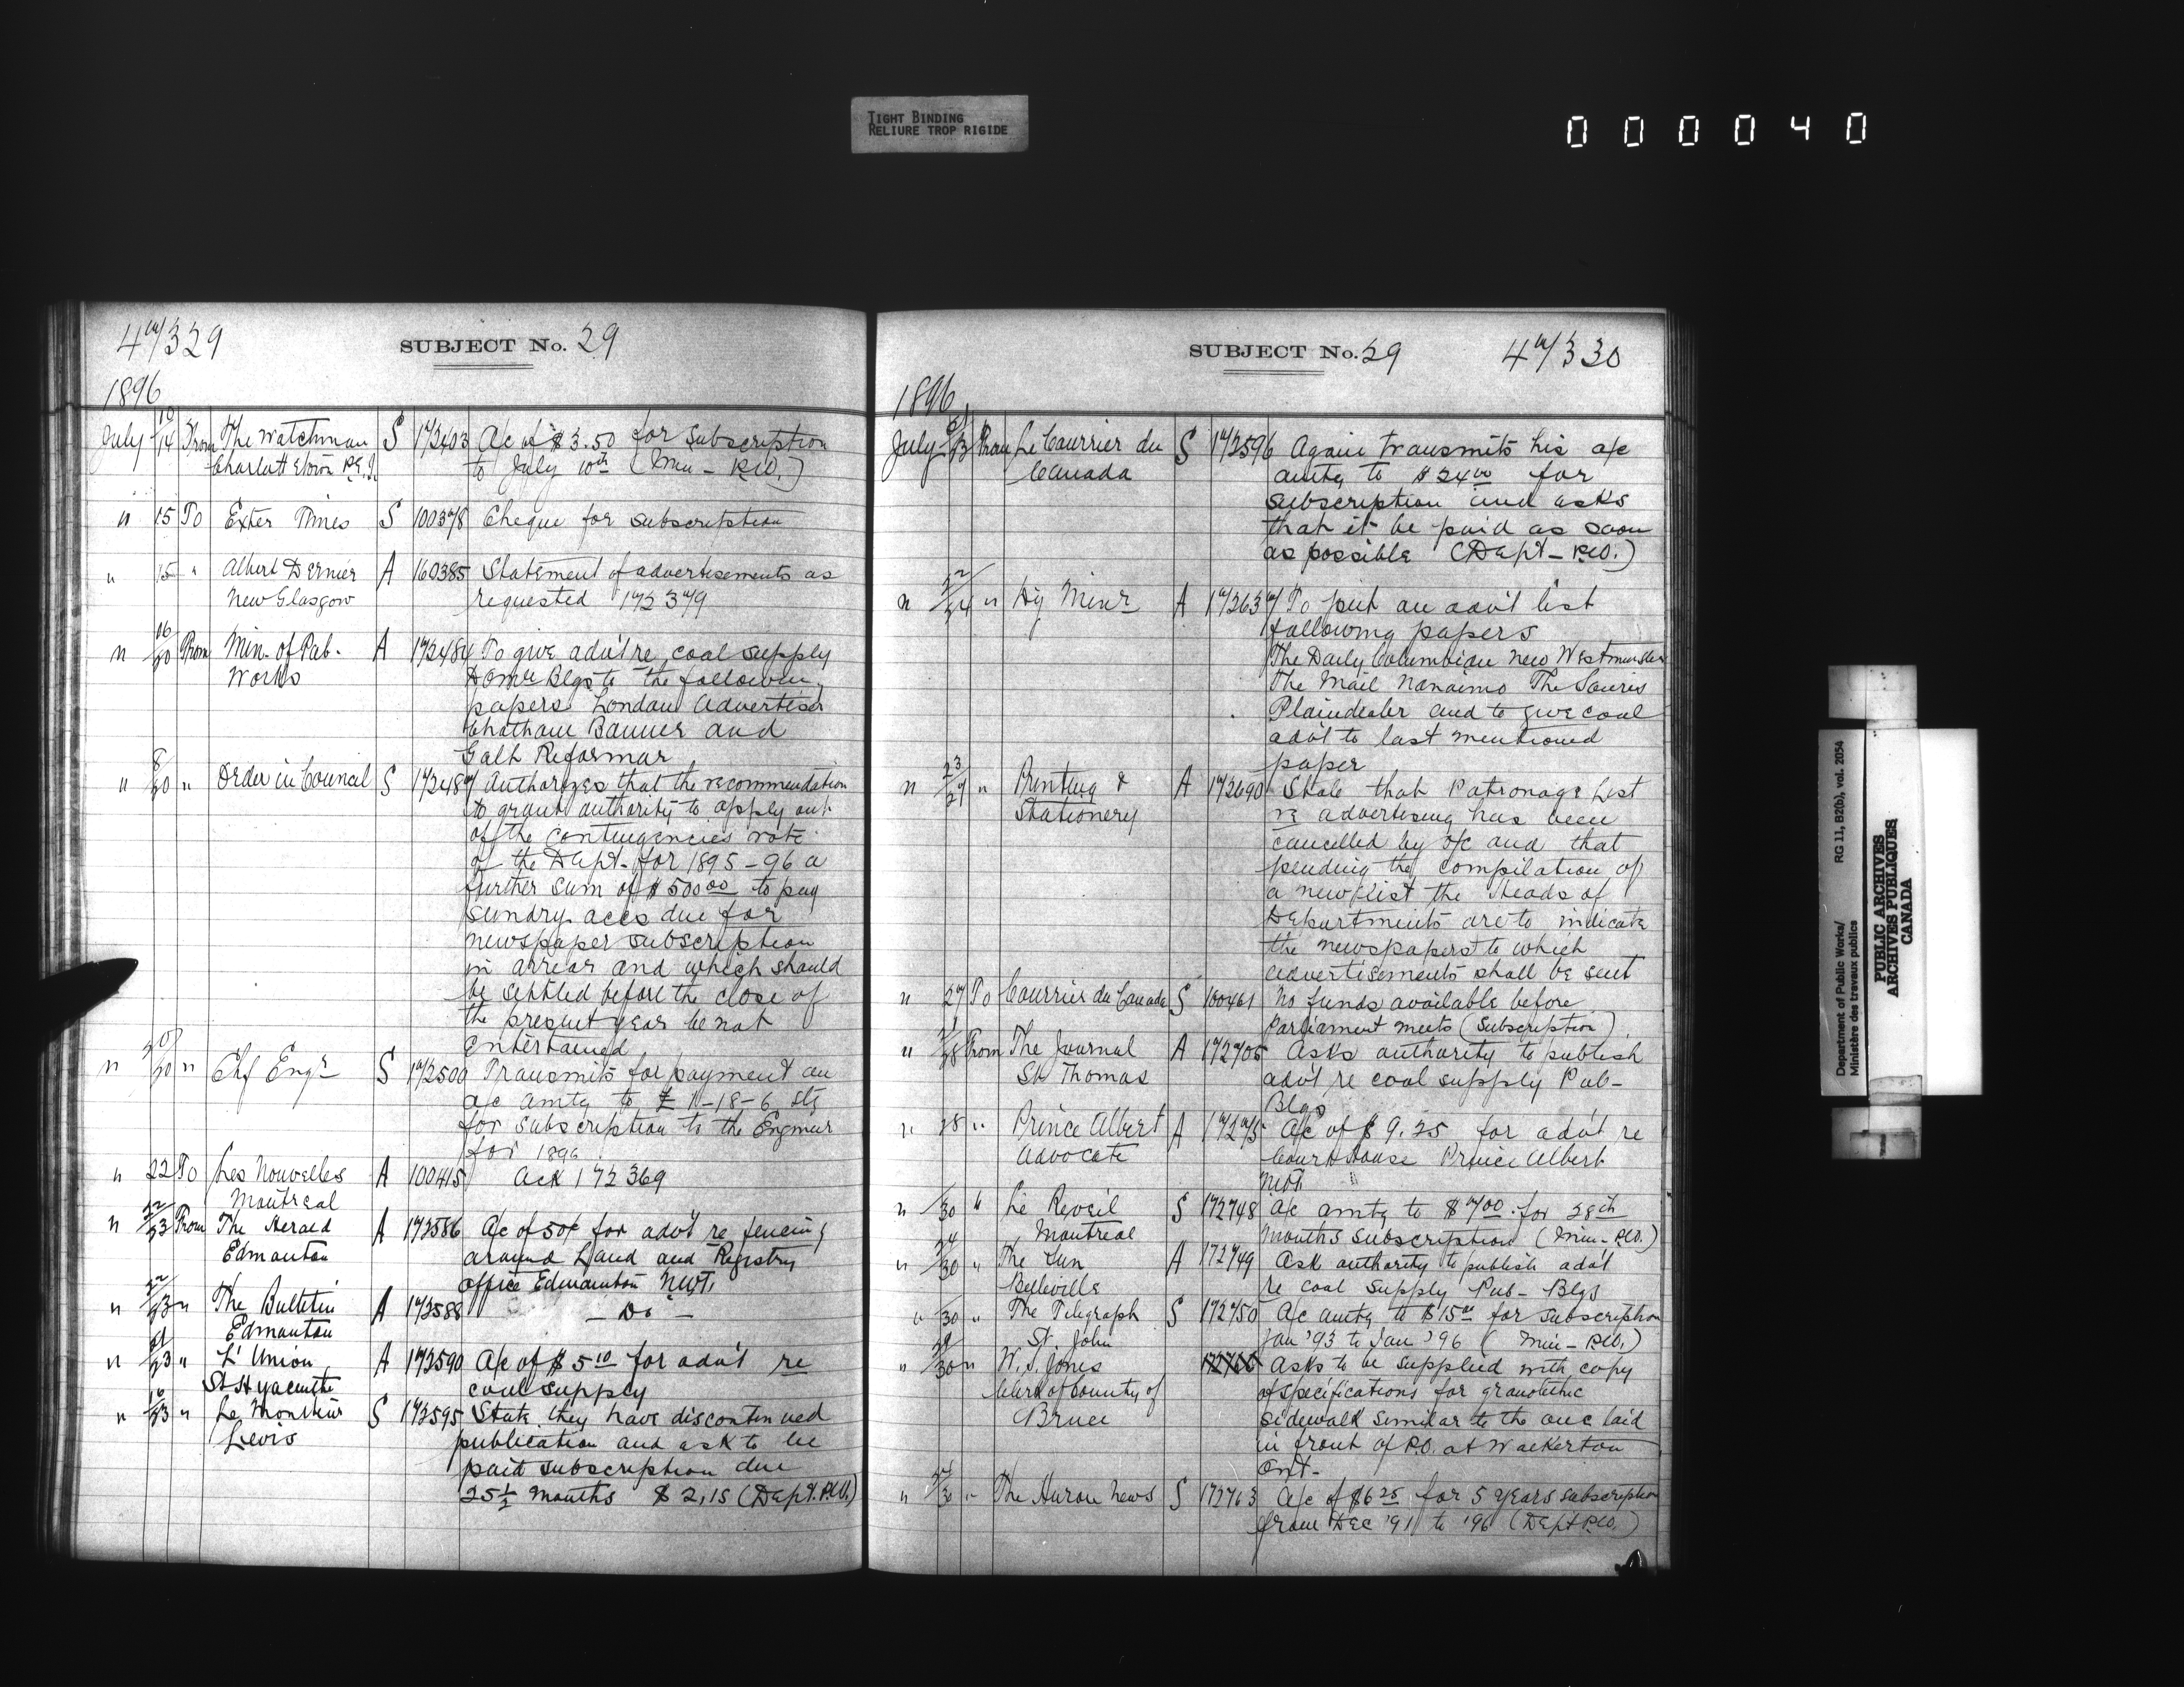 TIGHT BINDING
RELIURE TROP RIGIDE
000040
47/329
SUBJECT No. 29
1896
July 10/14 From The Watchman S 172403 A/c of $3.50 for subscription
Charlottetown P.E.I. to July 10th (Min - P.W.)
" 15 To Exter Times S 100378 Cheque for subscription
" 15 " Albert Dernier A 160385 Statement of advertisements as
New Glasgow requested 172379
" 16/20 From Min. of Pub. A 172484 To give adv't re coal supply
Works Domn Blgs to the following
papers London Advertiser
Chatham Banner and
Galt Reformar
" 8/20 " Order in Council S 172487 Authorizes that the recommendation
to grant authority to apply out
of the contingencies vote
of the Dept. for 1895-96 a
further sum of $50000 to pay
sundry accs due for
newspaper subscription
in arrear and which should
be settled before the close of
the present year be not
entertained
" 20/20 " Chf Engr S 172500 Transmits for payment an
a/c amtg to £ 1-18-6 stg
for subscription to the Engineer
for 1896
" 22 To Les Nouvelles A 100415 Ack 172369
Montreal
" 22/23 From The Herald A 172586 A/c of 50¢ for adv't re fencing
Edmonton around Land and Registry
office Edmonton NWT.
" 22/23 " The Bulletin A 172588 - Do -
Edmonton
" 21/23 " L'Union A 172590 A/c of $5 10 for adv't re
St Hyacinthe coal supply
" 16/23 " Le Moniteur S 172595 State they have discontinued
Levis publication and ask to be
paid subscription due
25 1/2 months $2,15 (Dept. P.W.)
SUBJECT No. 29
47/330
1896
July 21/23 From Le Courrier du S 172596 Again transmits his a/c
Canada amtg to $24 00 for
subscription and asks
that it be paid as soon
as possible (Dept - P.W.)
" 22/24 " Dy Minr A 172637 To put an adv't list
following papers
The Daily Columbian New Westminster
The Mail Nanaimo The Souris
Plaindealer and to give coal
adv't to last mentioned
paper
" 23/27 " Printing & A 172690 State that Patronage List
Stationery re advertising has been
cancelled by o/c and that
pending the compilation of
a new list the Heads of
Departments are to indicate
the newspapers to which
advertisements shall be sent
" 27 To Courrier du Canada S 100461 No funds available before
Parliament meets (Subscription)
" 28 From The Journal A 172706 Asks authority to publish
St Thomas adv't re coal supply Pub-
Blgs
" 28 " Prince Albert A A/c of $9.25 for adv't re
Advocate Court House Prince Albert
NWT.
" 30 " Le Reveil S 172748 A/c amtg to $7 00 for 28th
Montreal months subscription (Min - P.W.)
" 24/30 " The Sun A 172749 Ask authority to publish adv't
Belleville re coal supply Pub- Blgs
" 30 " The Telegraph S 172750 A/c amtg to $15 00 for subscription
St. John Jan '93 to Jan '96 (Min - P.W.)
" 29/30 " W. S. Jones Asks to be supplied with copy
Clerk of County of of specifications for granolithic
Bruce sidewalk similar to the one laid
in front of P.O. at Walkerton
Ont-
" " The Huron News S 172763 A/c of $6 25 for 5 years subscription
from Dec '91 to '96 (Dept P.W.)
Department of Public Works/
Ministère des travaux publics
RG 11, B2(b), vol. 2054
PUBLIC ARCHIVES
ARCHIVES PUBLIQUES
CANADA